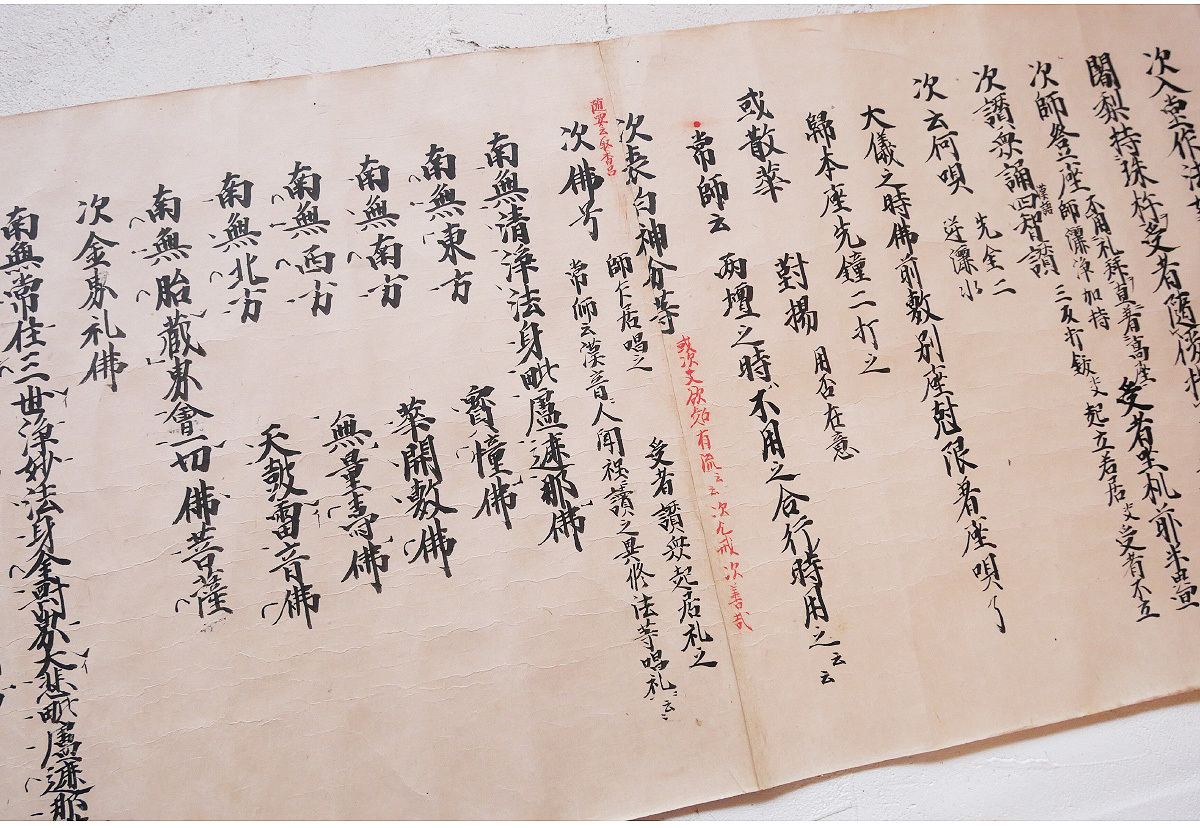 次入堂作法
闍梨持珠杵受者隨従
受者畳机前半畳
次師登座不用礼拜直着高座
師灑淨加持
三反打鈸
起立着居
受者不立
次讚衆誦四智讃
漢語
先金二
次云何唄
逆灑水
大儀之時佛前敷別座
限者座唄了
歸本座先鐘二打之
或散華
對揚
用否在意
常師云
兩壇之時不用之合行時用之云云
次表白神分等
或次文
有流云云次
戒次善哉
受者讃衆起居礼之
次佛号
師乍居唱之
常師云漢音人聞
讀之異修法等唱礼云云
南無清淨法身毗盧遮那佛
南無東方
寳幢佛
南無南方
華開敷佛
南無西方
無量壽佛
南無北方
天鼓雷音佛
南無胎藏界會一切佛菩薩
次金界礼佛
南無常住三世淨妙法身金剛界大悲毗盧遮那